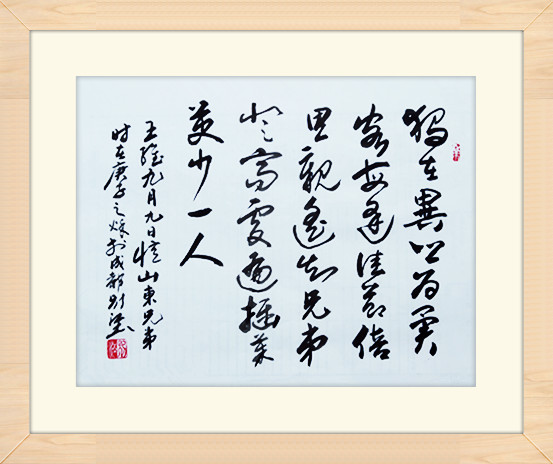 独在異乡为異
客每逢佳节倍
思親遥知兄弟
登高處遍插茱
萸少一人
王維九月九日憶山東兄弟
时在庚子之秋於成都